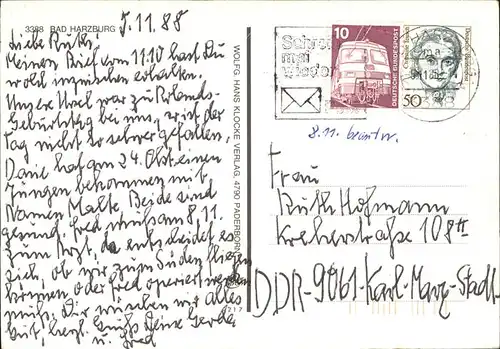 3388 BAD HARZBURG
5.11.88
Liebe Ruth,
Meinen Brief vom 11.10 hast Du
wohl inzwischen erhalten.
Unsere Ursel war zu Rolands
Geburtstag bei uns, er ist der
Tag nicht so schwer gefallen.
Danie hat am 24. Okt. einen
Jungen bekommen mit
Namen Malte. Beide sind
gesund. Fred muß am 8.11.
zum Arzt, da entscheidet es
sich, ob wir zum Süden fliegen
können oder Fred operiert werden
muß. Dir wünschen wir alles
Gute, herzl. Grüße Deine Gerda
u. Fred
WOLFG. HANS KLOCKE VERLAG, 4790 PADERBORN
217
Schreib
mal
wieder
10
DEUTSCHE BUNDESPOST
50
8.11. beantw.
Frau
Ruth Hofmann
Kreherstraße 108 II
DDR-9061-Karl-Marx-Stadt